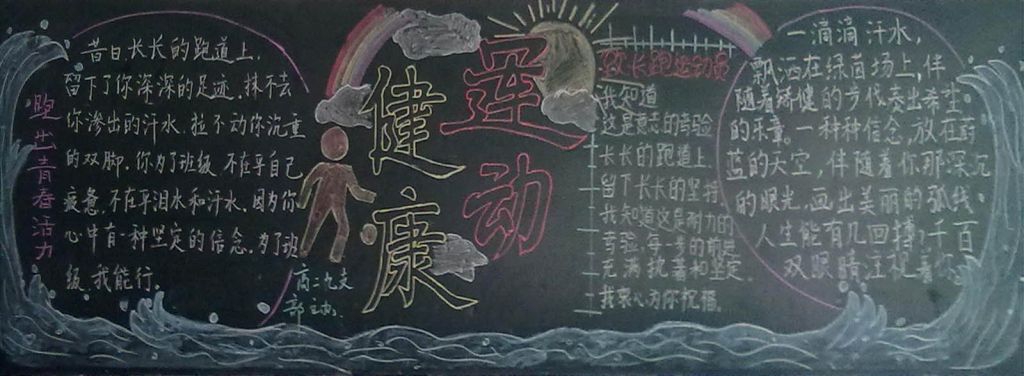 跑出青春活力
昔日长长的跑道上，
留下了你深深的足迹，抹不去
你渗出的汗水，拉不动你沉重
的双脚，你为了班级，不在乎自己
疲惫，不在乎泪水和汗水，因为你
心中有一种坚定的信念，为了班
级，我能行。
高二九支
部主办
健康
运动
致长跑运动员
我知道
这是意志的考验
长长的跑道上
留下长长的坚持
我知道这是耐力的
考验，每一美的瞬是
充满执着和坚定
我衷心为你祝福。
一滴滴汗水，
飘洒在绿茵场上，伴
随着矫健的步伐表出希望
的乐章。一种种信念，放在蔚
蓝的天空，伴随着你那深沉
的眼光，画出美丽的弧线。
人生能有几回搏，千百
双眼睛注视着你